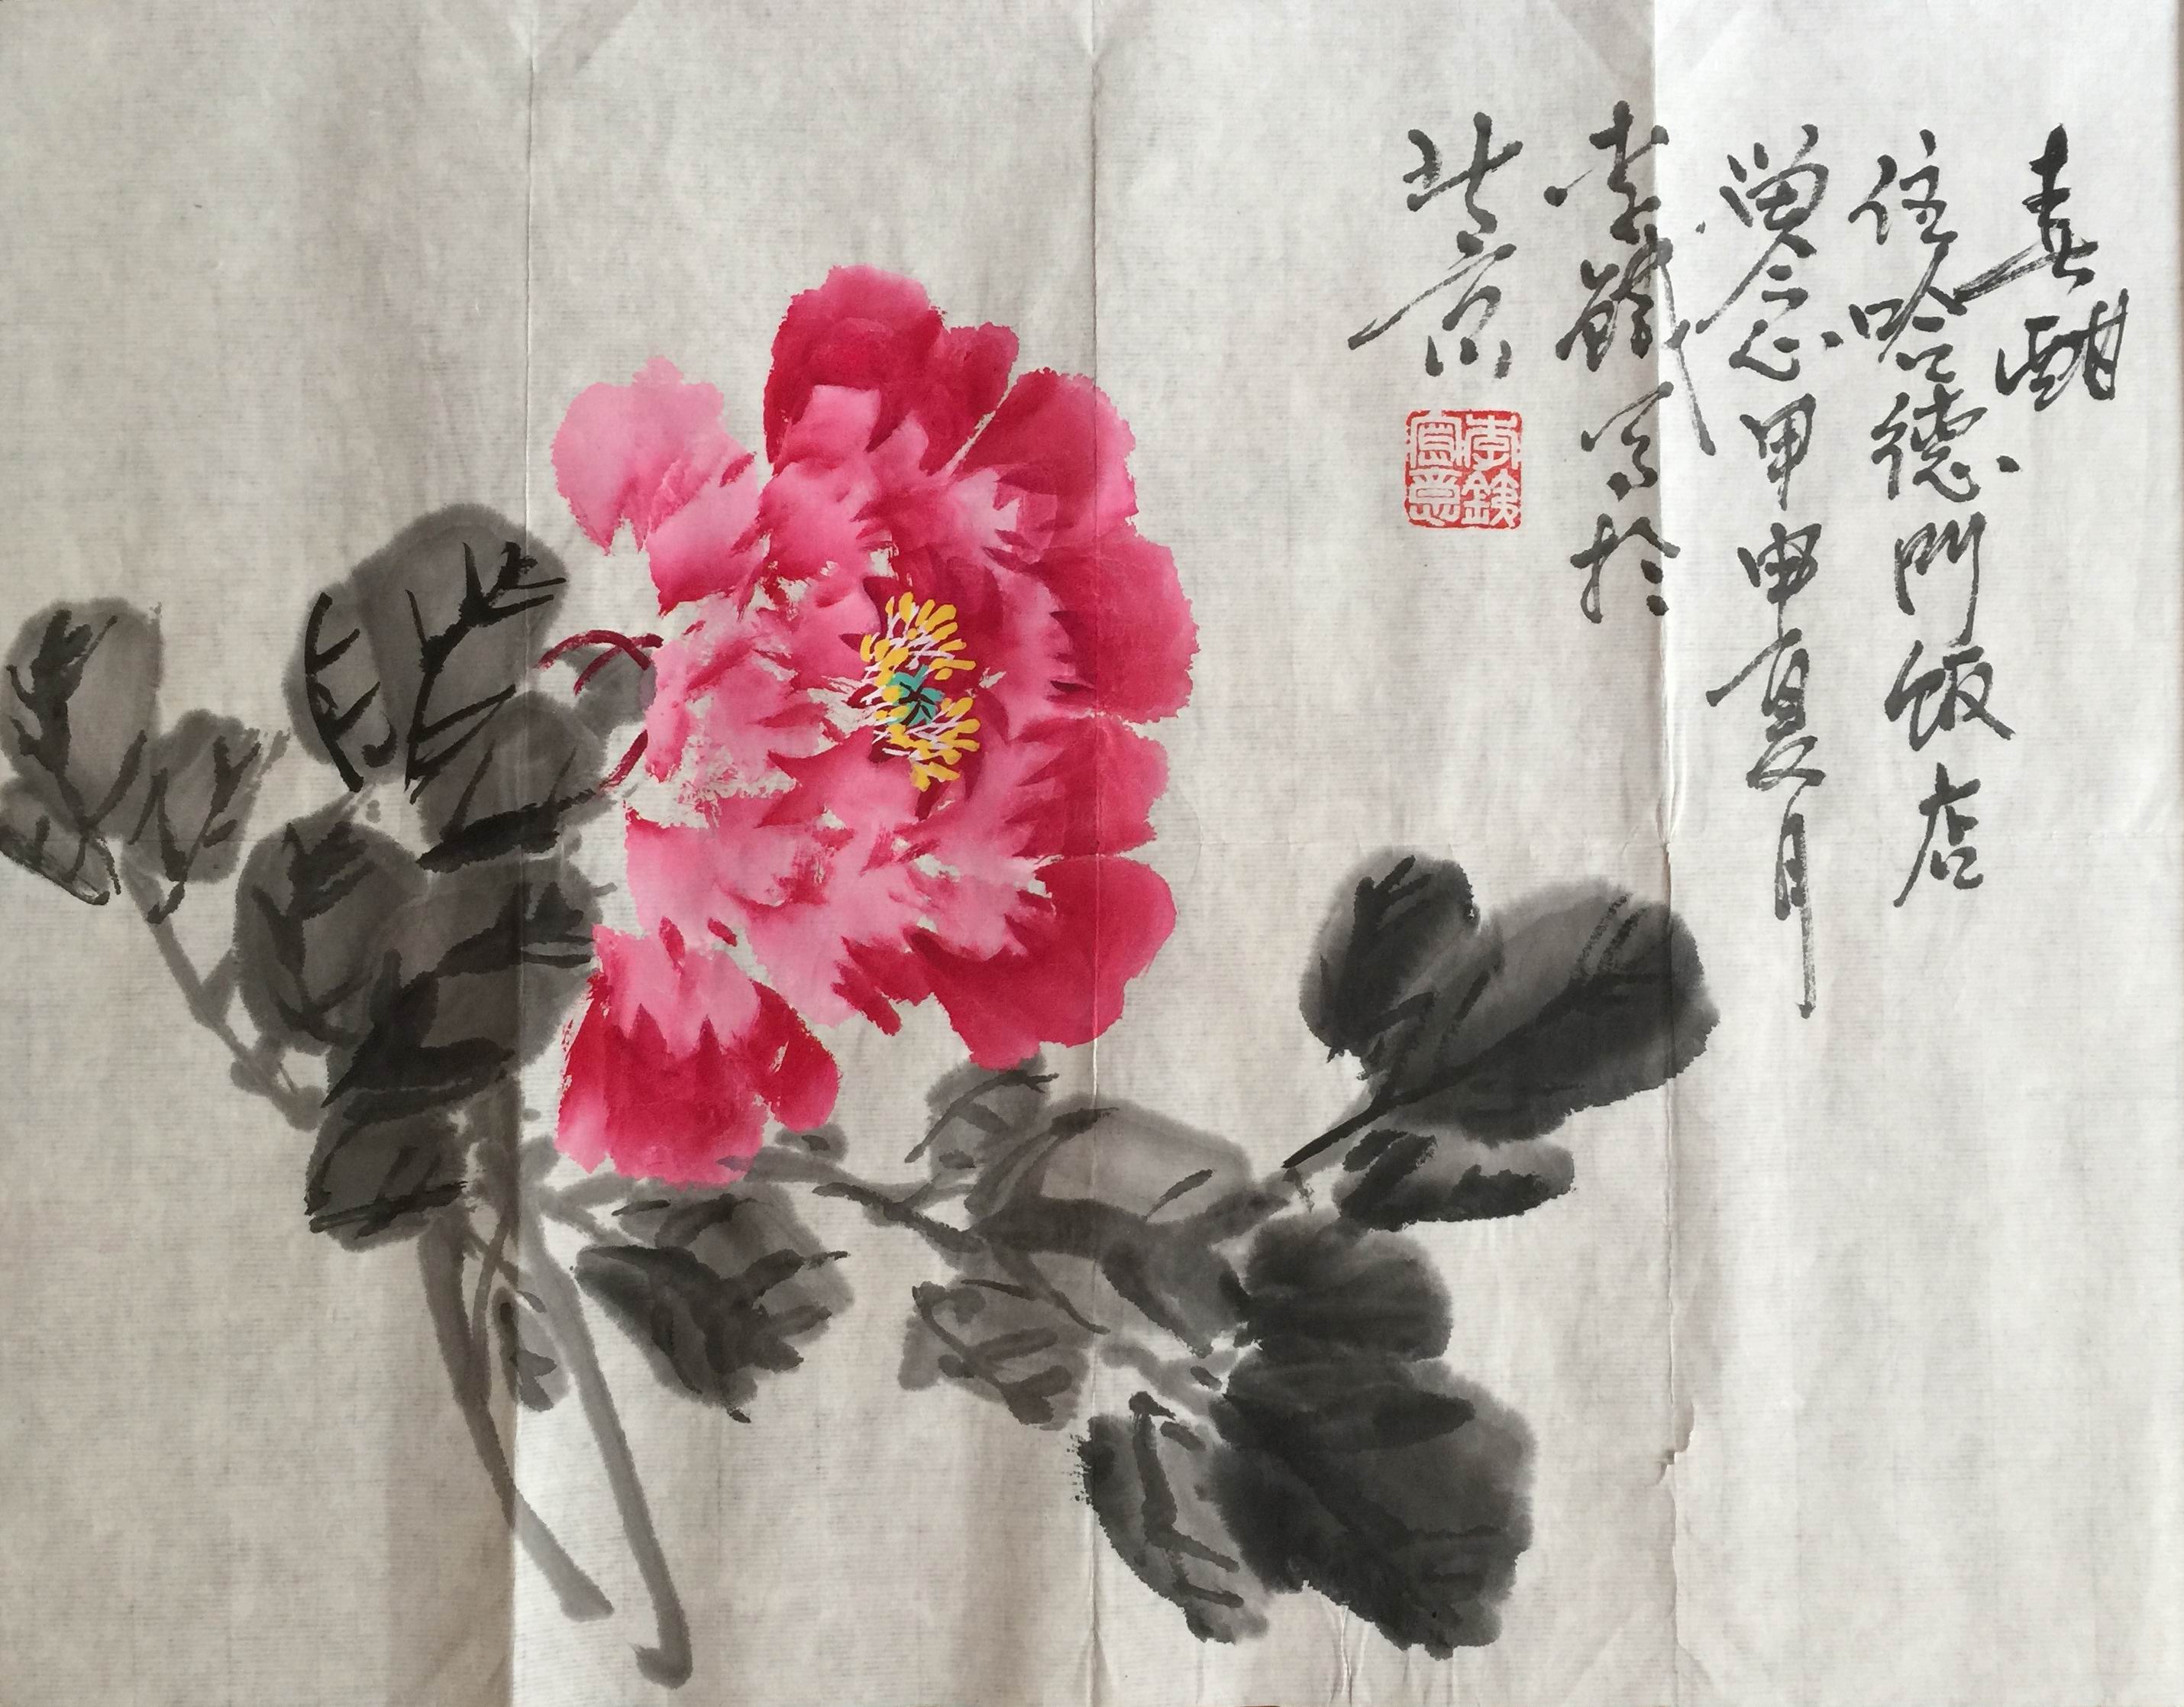 春酣
住哈德門飯店
留念甲申夏月
李鐵写於
北京
李鐵
寫意